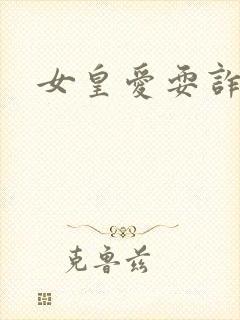 女皇愛耍詐
克鲁兹